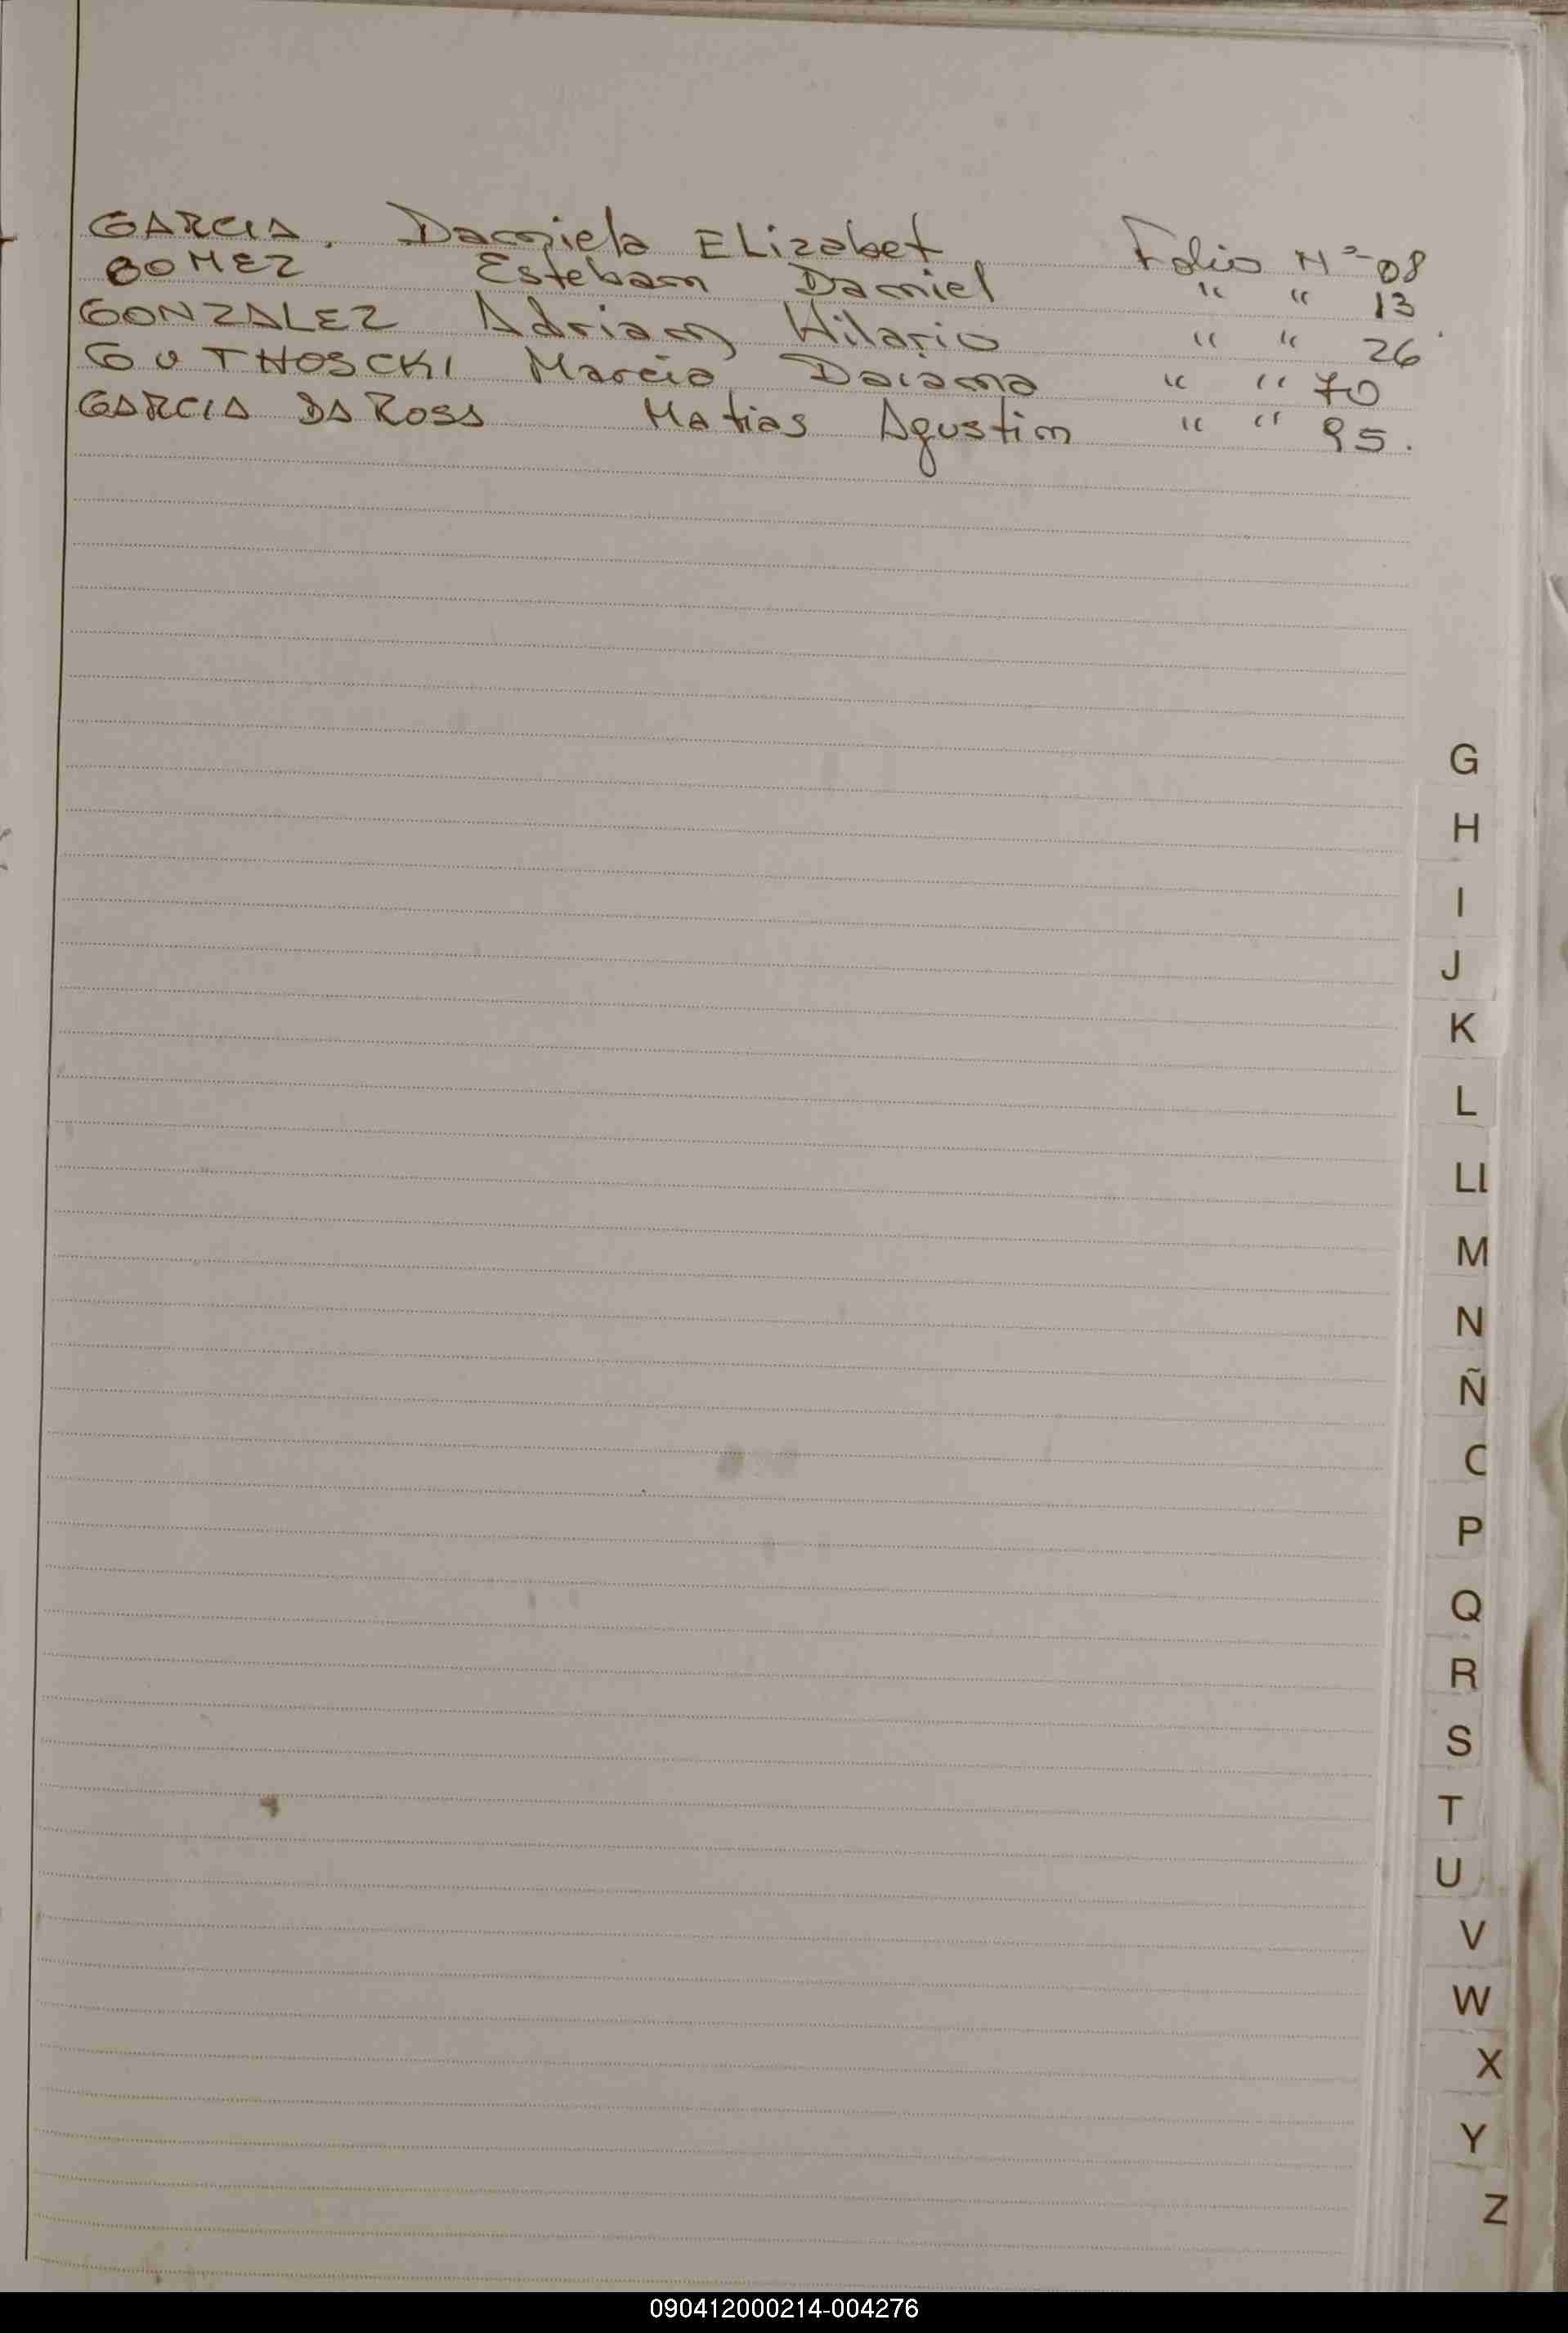 GARCIA. Daniela ELizabet Folio Nº 08
GOMEZ Esteban Daniel " " 13
GONZALEZ Adrian Hilario " " 26
GUTHOSCKI Marcia Daiana " " 70
GARCIA DA ROSA Matias Agustin " " 95.
G
H
I
J
K
L
Ll
M
N
Ñ
O
P
Q
R
S
T
U
V
W
X
Y
Z
090412000214-004276